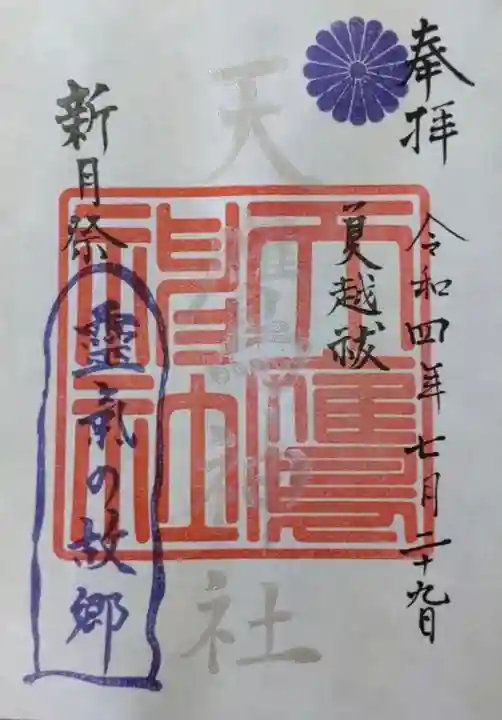 奉拝
令和四年七月二十九日
夏越祓
天鷹神社
新月祭
靈氣の故郷